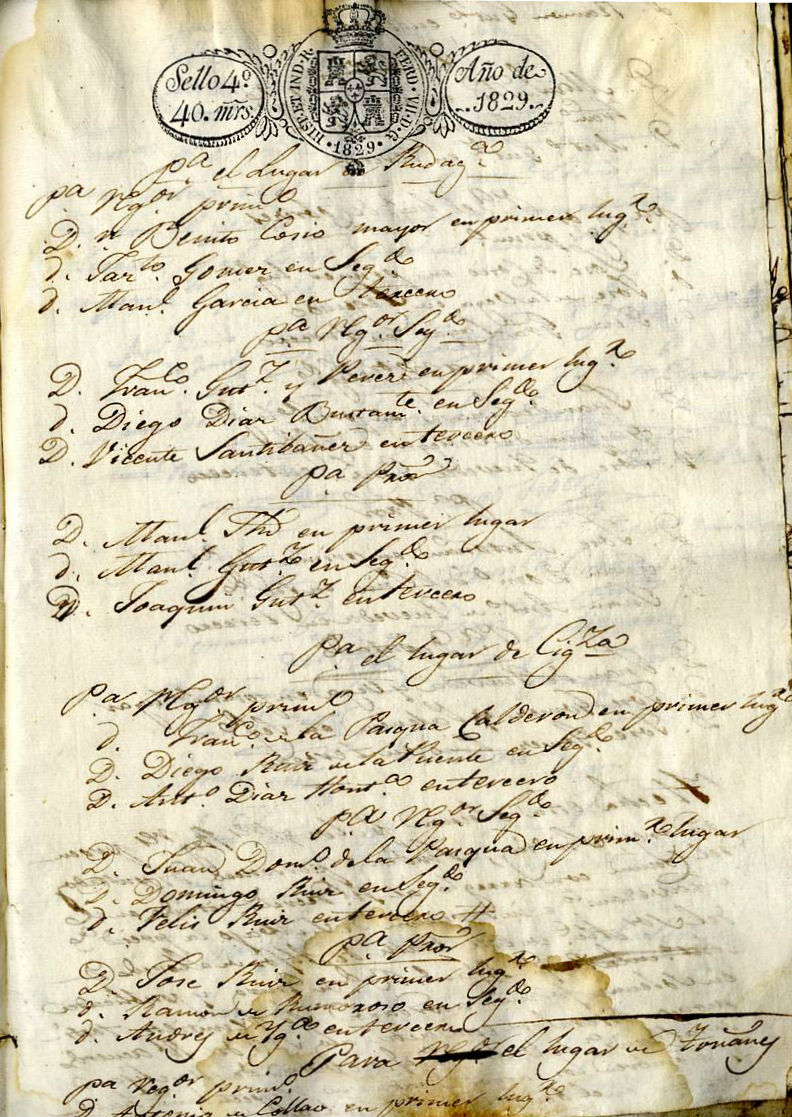 Sello 4º
40. mrs.
HISP. ET IND. R.
FERD. VII. D. G.
1829.
Año de
1829.
pª el Lugar de Rudagª
pª Rgor primº
D. n Benito Cosio mayor en primer lugr
d. Garlo Gomez en Segdo
d. Manl Garcia en tercero
pª Rgor Segdo
D. Franco Gutz y Perez en primer lugr
d. Diego Diaz Bustamte en Segdo
D. Vicente Santibañez en tercero
pª Pror
D. Manl en primer lugar
d. Manl Gutz en Segdo
D. Joaquin Gutz en tercero
pª el lugar de Cigza
pª Rgor primº
d. Franco de la Pasqua Calderon en primer lugr
D. Diego Ruiz de la Puente en Segdo
D. Anto Diaz en tercero
pª Rgor Segdo
D. Juan Domo de la Pasqua en primr lugar
D. Domingo Ruiz en Segdo
d. Felis Ruiz en tercero
pª Pror
D. Jose Ruiz en primer lugr
d. Ramon de Rumoroso en Segdo
d. Andres de Ygo en tercero
Para el lugar de Toñanes
pª Regor primº
D. Antonio de Collao en primer lugr